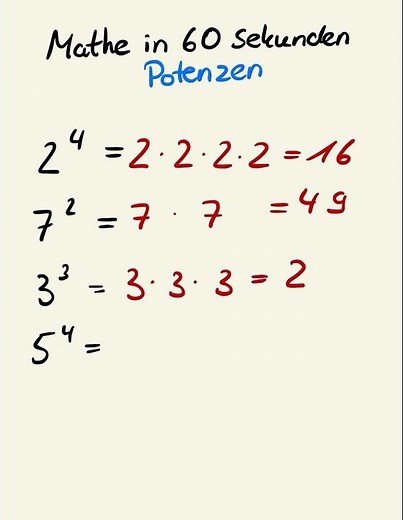 Mathe in 60 Sekunden
Potenzen
2⁴ = 2 · 2 · 2 · 2 = 16
7² = 7 · 7 = 49
3³ = 3 · 3 · 3 = 2
5⁴ =